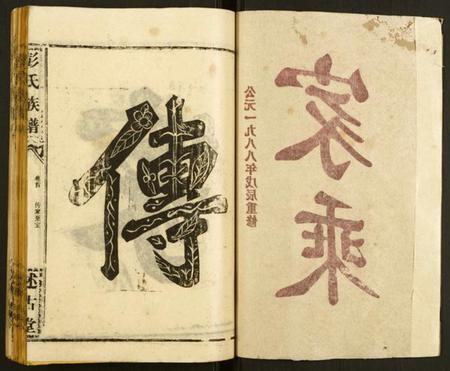 家乘
公元一九八八年戊辰重修
傳
彭氏族譜
卷首
传家至宝
述古堂